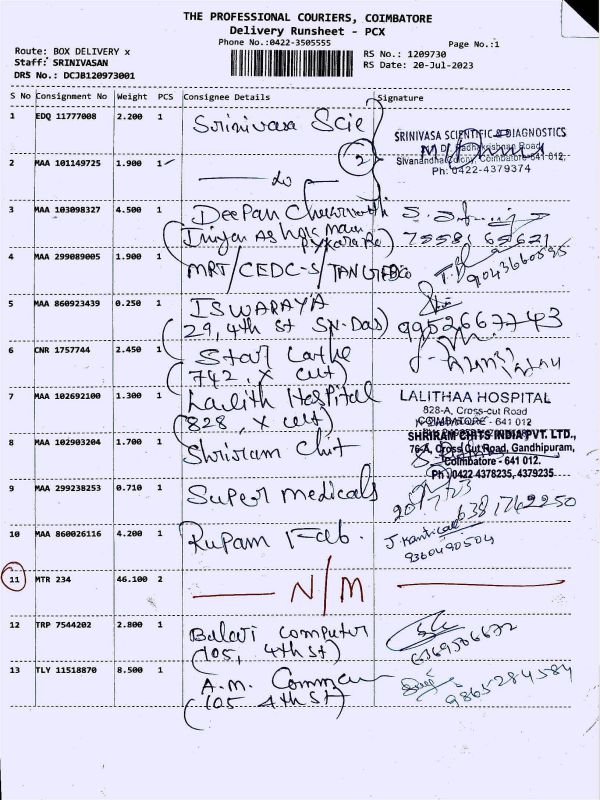 THE PROFESSIONAL COURIERS, COIMBATORE
Delivery Runsheet - PCX
Phone No.:0422-3505555
Page No.:1
Route: BOX DELIVERY x
Staff: SRINIVASAN
DRS No.: DCJB120973001
RS No.: 1209730
RS Date: 20-Jul-2023
S No Consignment No Weight PCS Consignee Details Signature
1 EDQ 11777008 2.200 1 Srinivasa Scie
SRINIVASA SCIENTIFIC & DIAGNOSTICS
Dr. Radhakrishnan Road,
Sivanandha Colony, Coimbatore-641 012,
Ph: 0422-4379374
2 MAA 101149725 1.900 1 do 2
3 MAA 103098327 4.500 1 Deepan
75581 65621
4 MAA 299089005 1.900 1 MRT/CEDC-S/TANGEDCO
9043660595
5 MAA 860923439 0.250 1 ISWARAYA
(29, 4th St SN-Das)
9952667743
6 CNR 1757744 2.450 1 Star Lathe
(742, X cut)
7 MAA 102692100 1.300 1 Lalith Hospital
(828, X cut)
LALITHAA HOSPITAL
828-A, Cross-cut Road
COIMBATORE - 641 012
8 MAA 102903204 1.700 1 Shriram Chit
SHRIRAM CHITS INDIA PVT. LTD.,
76-A, Cross Cut Road, Gandhipuram,
Coimbatore - 641 012.
Ph : 0422 4378235, 4379235
9 MAA 299238253 0.710 1 Super Medicals
20/7/23
6381762250
10 MAA 860026116 4.200 1 Rupam Fab.
J. Kantilal
9360490504
11 MTR 234 46.100 2 N/M
12 TRP 7544202 2.800 1 Balaji Computer
(105, 4th St)
6369306672
13 TLY 11518870 8.500 1 A.M. Commer
(105 4th St)
9865284584